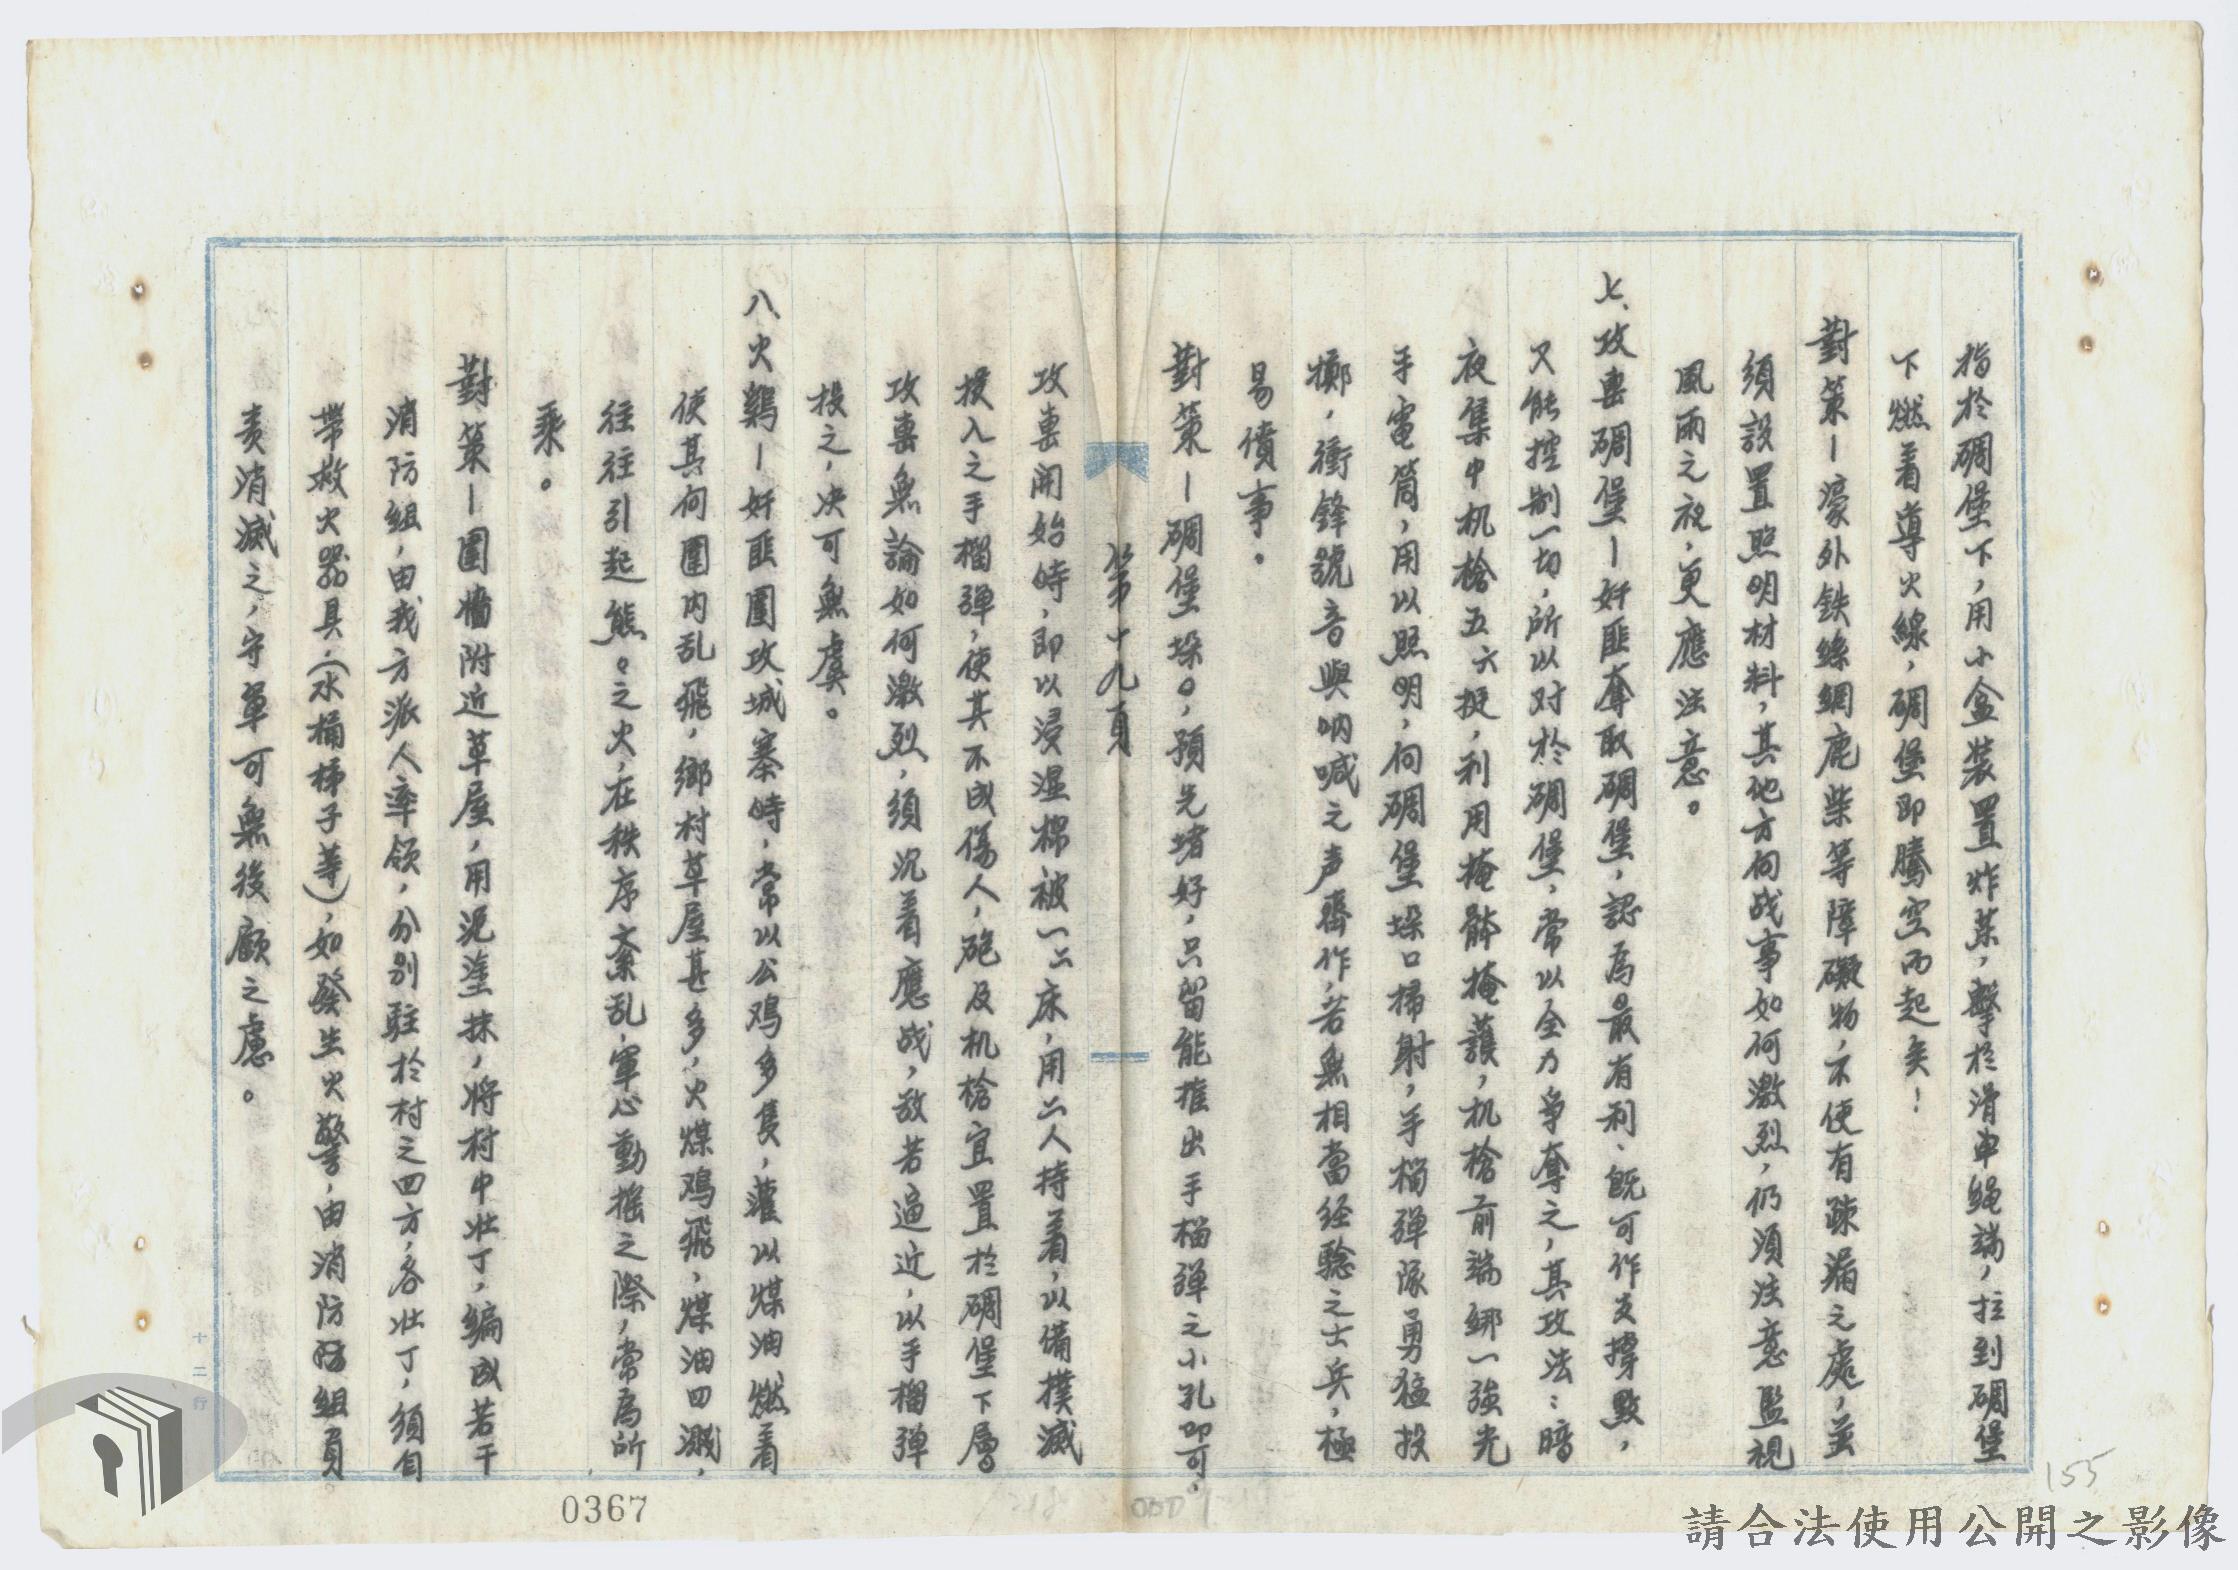 指於碉堡下，用小盒裝置炸葯，繫於滑車繩端，拉到碉堡
下燃着導火線，碉堡即騰空而起矣！
對策－濠外鉄絲網鹿柴等障礙物，不使有疎漏之處，並
須設置照明材料，其他方向战事如何激烈，仍須注意監視
風雨之夜，更應注意。
七、攻專碉堡－奸匪奪取碉堡，認為最有利、既可作支撐點，
又能控制一切，所以对於碉堡，常以全力爭奪之，其攻法：暗
夜集中机槍五六挺，利用掩体掩護，机槍前端綁一強光
手電筒，用以照明，向碉堡垛口掃射，手榴弹隊勇猛投
擲，衝鋒號音與吶喊之声齊作，若無相當经驗之士兵，極
易僨事。
對策－碉堡垛口，預先堵好，只留能推出手榴弹之小孔即可。
第十九頁
攻專開始時，即以浸湿棉被一二床，用二人持着，以備撲滅
投入之手榴弹，使其不成傷人，砲及机槍宜置於碉堡下層
攻專無論如何激烈，須沉着應战，敌若逼近，以手榴弹
投之，决可無虞。
八、火鷄－奸匪圍攻城寨時，常以公鸡多隻，灌以煤油燃着
使其向圍内乱飛，鄉村草屋甚多，火煤鸡飛，煤油四濺，
往往引起熊。之火，在秩序紊乱，軍心動摇之際，常為所
乘。
對策－圍牆附近草屋，用泥塗抹，将村中壮丁，编成若干
消防組，由我方派人率領，分别駐於村之四方，各壮丁，須自
帶救火器具，（水桶梯子等），如發生火警，由消防組員
責消滅之，守軍可無後顧之慮。
十二行
0367
155
請合法使用公開之影像